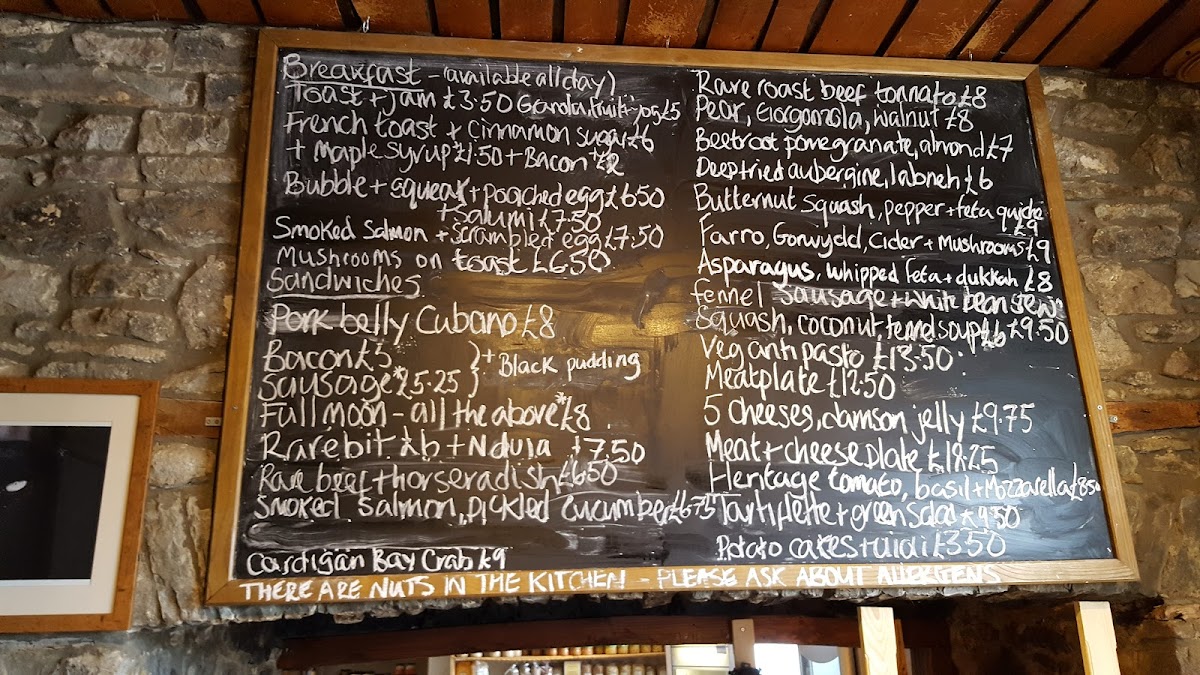 Breakfast - (available all day)
Toast + Jam £3.50 Granola, fruit, yog £5
French toast + cinnamon sugar £6
+ maple syrup £1.50 + Bacon £2
Bubble + squeak + poached egg £6.50
+ salumi £7.50
Smoked Salmon + scrambled egg £7.50
Mushrooms on toast £6.50
Sandwiches
Pork belly Cubano £8
Bacon £5
Sausage* £5.25
} + Black pudding
Full moon - all the above* £8
Rarebit £6 + Nduia £7.50
Rare beef + horseradish £6.50
Smoked salmon, pickled cucumber £6.75
Cardigan Bay Crab £9
Rare roast beef tonnato £8
Pear, Gorgonzola, walnut £8
Beetroot pomegranate, almond £7
Deep fried aubergine, labneh £6
Butternut squash, pepper + feta quiche
£9
Farro, Gorwydd, Cider + Mushrooms £9
Asparagus, whipped feta + dukkah £8
fennel sausage + white bean stew
£9.50
Squash, coconut + red soup £6
Veg antipasto £13.50
Meat plate £12.50
5 cheeses, damson jelly £9.75
Meat + cheese plate £18.25
Heritage tomato, basil + Mozzarella £8.50
Tartiflette + green salad £9.50
Potato cakes + £3.50
THERE ARE NUTS IN THE KITCHEN - PLEASE ASK ABOUT ALLERGENS